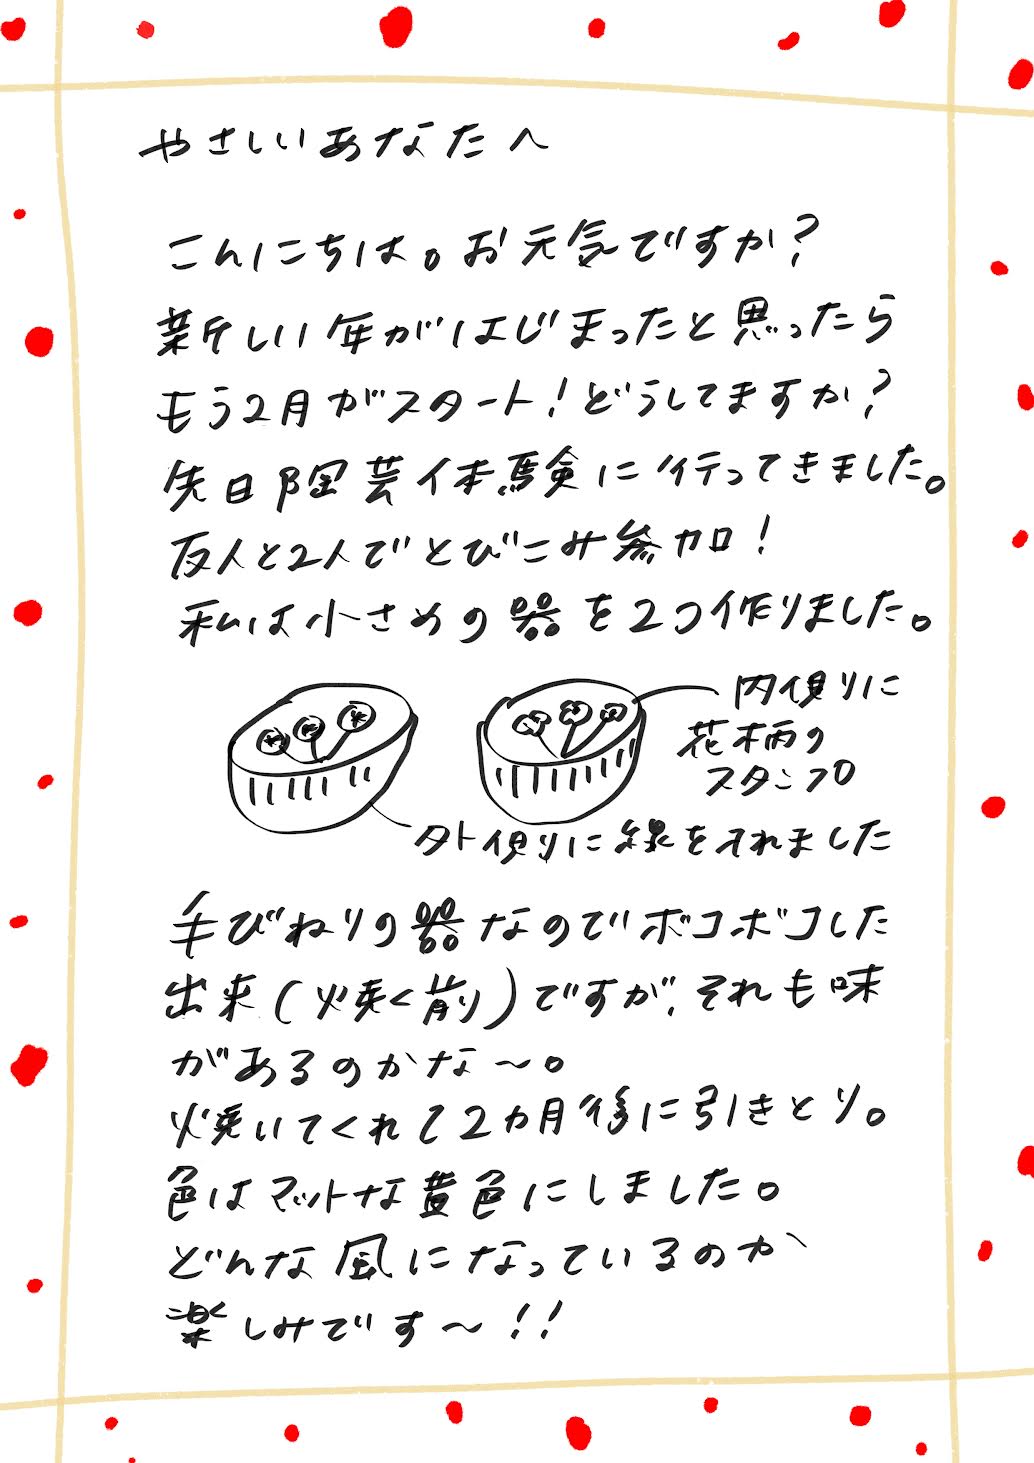 やさしいあなたへ
こんにちは。お元気ですか?
新しい年がはじまったと思ったら
もう2月がスタート!どうしてますか?
先日陶芸体験に行ってきました。
友人と2人でとびこみ参加!
私は小さめの器を2つ作りました。
内側に
花柄の
スタンプ
外側に線を入れました
手びねりの器なのでボコボコした
出来(焼く前)ですが、それも味
があるのかな〜。
焼いてくれて2カ月後に引きとり。
色はマットな黄色にしました。
どんな風になっているのか
楽しみです〜!!